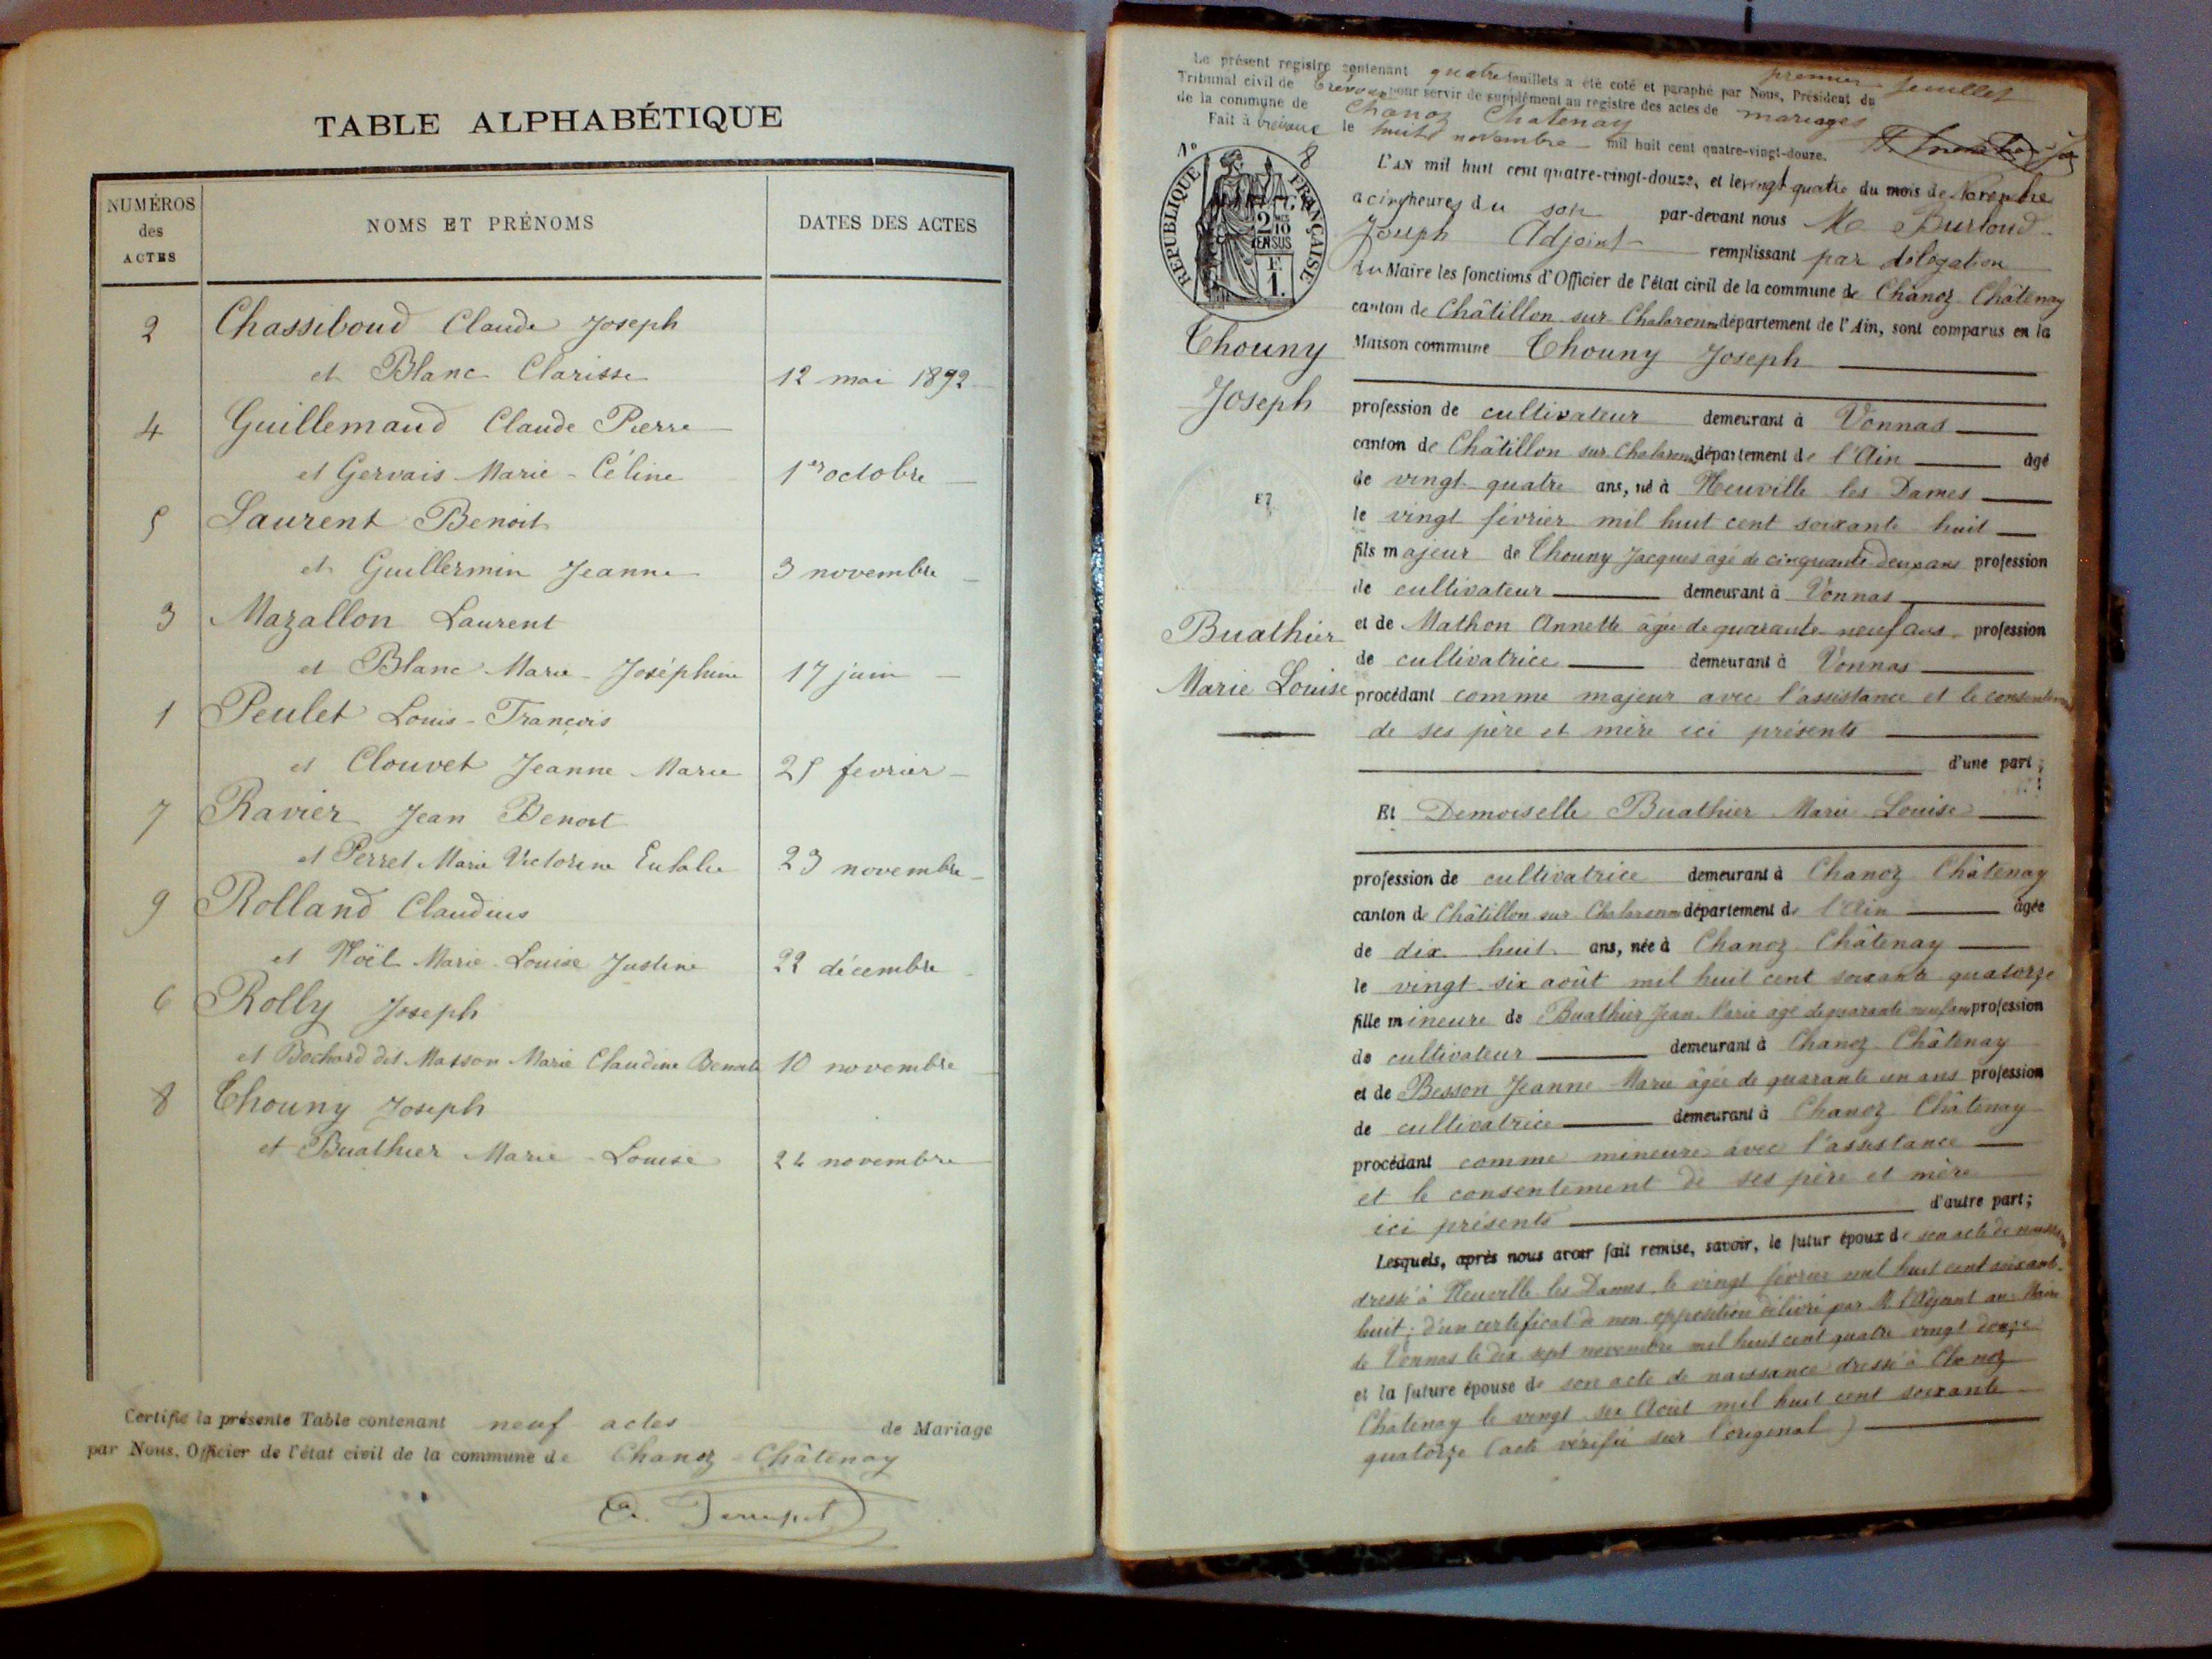 TABLE ALPHABÉTIQUE
NUMÉROS des ACTES
NOMS ET PRÉNOMS
DATES DES ACTES
2 Chassiboud Claude Joseph
et Blanc Clarisse 12 mai 1892
4 Guillemaud Claude Pierre
et Gervais Marie-Céline 1er octobre
5 Laurent Benoit
et Guillermin Jeanne 3 novembre
3 Mazallon Laurent
et Blanc Marie-Joséphine 17 juin
1 Peulet Louis-François
et Clouvet Jeanne Marie 25 fevrier
7 Ravier Jean Benoit
et Perret Marie Victorine Eulalie 23 novembre
9 Rolland Claudius
et Noël Marie-Louise Justine 22 décembre
6 Rolly Joseph
et Bochard dit Masson Marie Claudine Benoite 10 novembre
8 Thouny Joseph
et Buathier Marie-Louise 24 novembre
Certifié la présente Table contenant neuf actes de Mariage
par Nous, Officier de l'état civil de la commune de Chanoz-Châtenay
premier feuillet
Le présent registre contenant quatre feuillets a été coté et paraphé par Nous, Président du
Tribunal civil de Trévoux pour servir de supplément au registre des actes de mariages
de la commune de Chanoz Chatenay
Fait à Trévoux le huit novembre mil huit cent quatre-vingt-douze.
No 8
RÉPUBLIQUE FRANÇAISE
2 10 EN SUS
F.
1.
L'AN mil huit cent quatre-vingt-douze, et le vingt quatre du mois de Novembre
a cinq heures du soir par-devant nous Me Burloud
Joseph Adjoint remplissant par délégation
du Maire les fonctions d'Officier de l'état civil de la commune de Chanoz Châtenay
canton de Châtillon sur Chalaronne département de l'Ain, sont comparus en la
Maison commune Thouny Joseph
Thouny
Joseph
profession de cultivateur demeurant à Vonnas
canton de Châtillon sur Chalaronne département de l'Ain âgé
de vingt-quatre ans, né à Neuville les Dames
le vingt février mil huit cent soixante huit
fils majeur de Thouny Jacques âgé de cinquante deux ans profession
de cultivateur demeurant à Vonnas
ET
Buathier
Marie Louise
et de Mathon Annette âgée de quarante-neuf ans profession
de cultivatrice demeurant à Vonnas
procédant comme majeur avec l'assistance et le consentement
de ses père et mère ici présents
d'une part;
Et Demoiselle Buathier Marie Louise
profession de cultivatrice demeurant à Chanoz Châtenay
canton de Châtillon sur Chalaronne département de l'Ain âgée
de dix huit ans, née à Chanoz Châtenay
le vingt six août mil huit cent soixante quatorze
fille mineure de Buathier Jean Marie âgé de quarante neuf ans profession
de cultivateur demeurant à Chanoz Châtenay
et de Besson Jeanne-Marie âgée de quarante un ans profession
de cultivatrice demeurant à Chanoz Châtenay
procédant comme mineure avec l'assistance
et le consentement de ses père et mère
ici présents d'autre part;
Lesquels, après nous avoir fait remise, savoir, le futur époux de son acte de naissance
dressé à Neuville les Dames le vingt février mil huit cent soixante-
huit; d'un certificat de non opposition délivré par M. l'Adjoint au Maire
de Vonnas le dix sept novembre mil huit cent quatre vingt douze
et la future épouse de son acte de naissance dressé à Chanoz
Châtenay le vingt six Août mil huit cent soixante
quatorze (acte vérifié sur l'original)